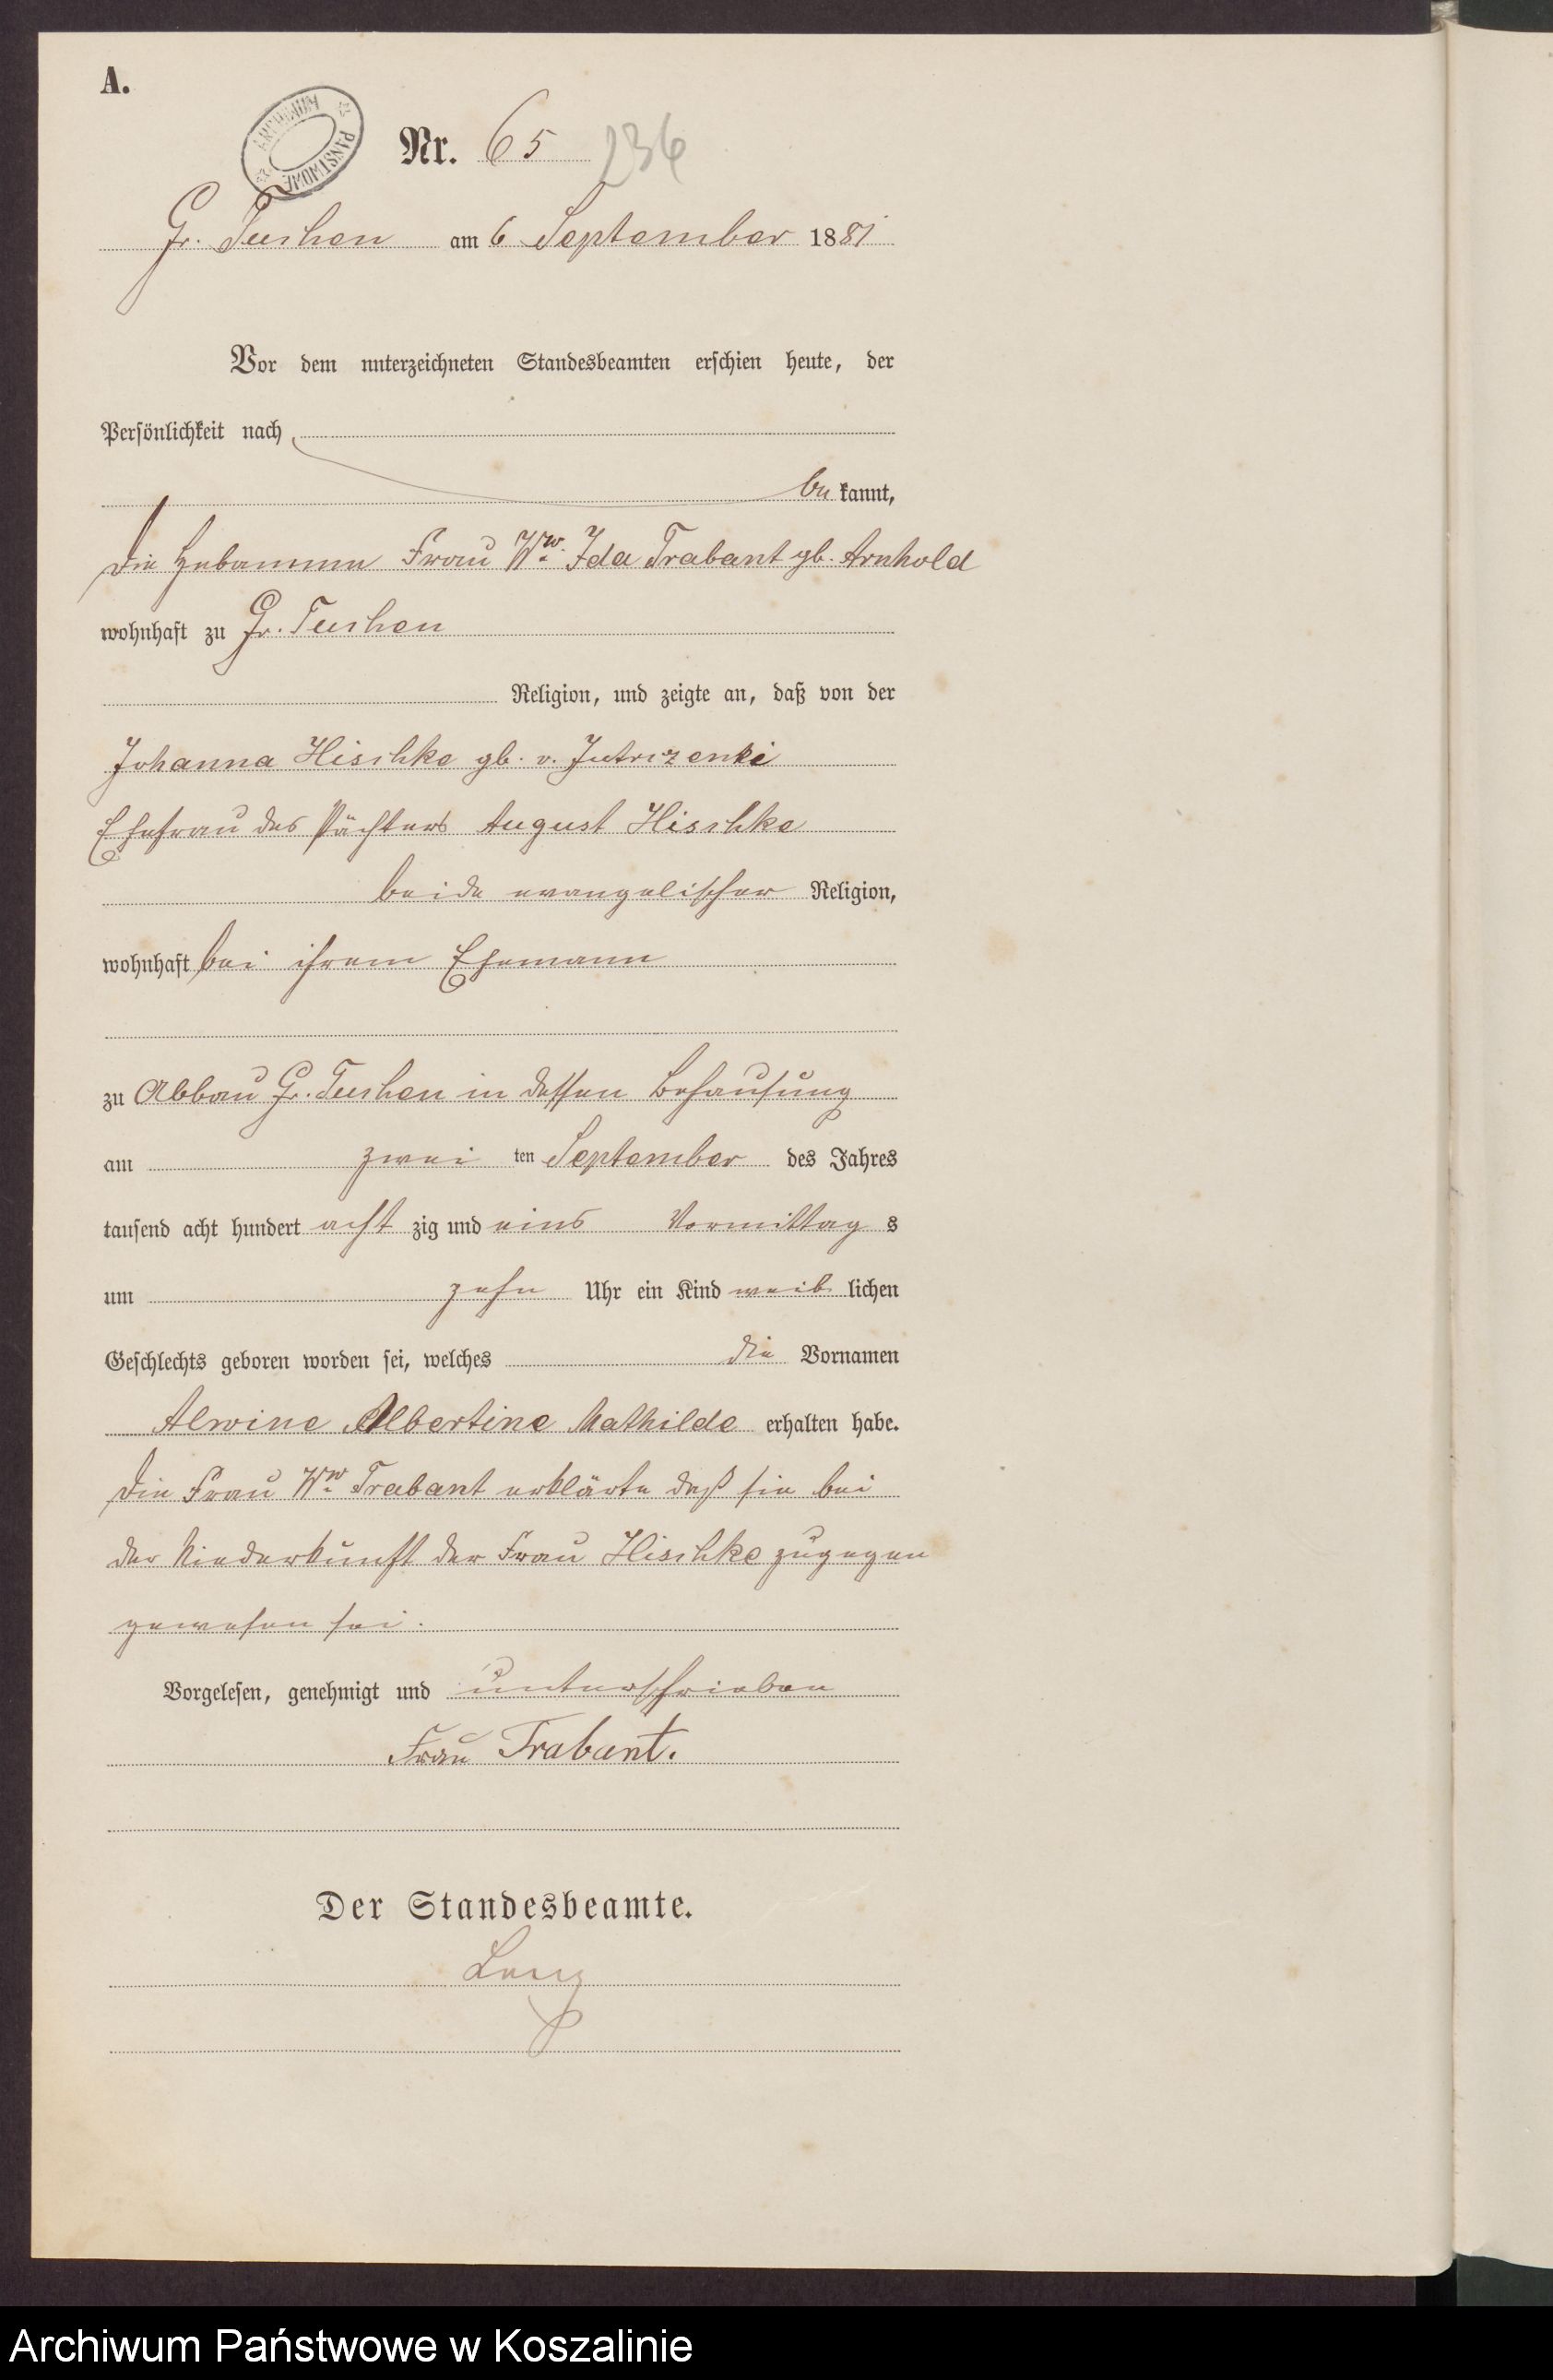 A.
ARCHIWUM PAŃSTWOWE
Nr. 65 236
Gr. Tuchen am 6 September 1881
Vor dem unterzeichneten Standesbeamten erschien heute, der
Persönlichkeit nach
be kannt,
die Hebamme Frau Ww. Ida Trabant gb. Arnhold
wohnhaft zu Gr. Tuchen
Religion, und zeigte an, daß von der
Johanna Hischke gb. v. Jutrzenki
Ehefrau des Pächters August Hischke
beide evangelischer Religion,
wohnhaft bei ihrem Ehemann
zu Abbau Gr. Tuchen in dessen Behausung
am zwei ten September des Jahres
tausend acht hundert acht zig und eins Vormittag s
um zehn Uhr ein Kind weib lichen
Geschlechts geboren worden sei, welches die Vornamen
Alwine Albertine Mathilde erhalten habe.
Die Frau Ww. Trabant erklärte daß sie bei
der Niederkunft der Frau Hischke zugegen
gewesen sei.
Vorgelesen, genehmigt und unterschrieben
Frau Trabant.
Der Standesbeamte.
Archiwum Państwowe w Koszalinie